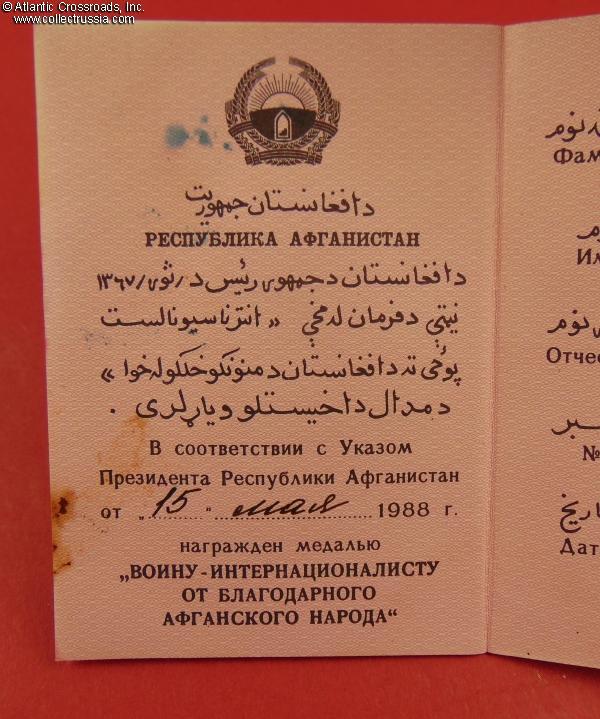 © Atlantic Crossroads, Inc.
www.collectrussia.com
دافغانستان جمهوریت
РЕСПУБЛИКА АФГАНИСТАН
دافغانستان دجمهوری رئیس د /ثوی/ ۱۳۶۷
نیټې دفرمان له مخې « انترناسیونالست
پوځی ته دافغانستان دمننکوونکو خلکو له خوا »
دمدال داخیستلو ویاړ لری .
В соответствии с Указом
Президента Республики Афганистан
от „ 15 “ мая 1988 г.
награжден медалью
„ВОИНУ-ИНТЕРНАЦИОНАЛИСТУ
ОТ БЛАГОДАРНОГО
АФГАНСКОГО НАРОДА“
نوم
Фам
Им
نوم
Отчес
№
Дат